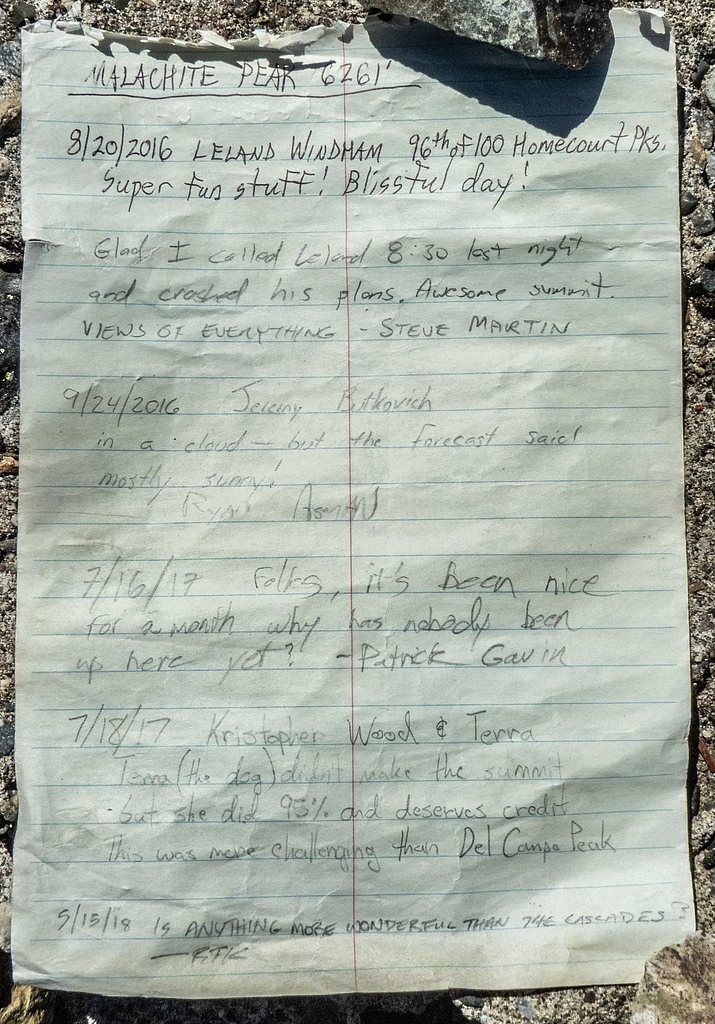 MALACHITE PEAK 6261'
8/20/2016 LELAND WINDHAM 96th of 100 Homecourt Pks.
Super fun stuff! Blissful day!
Glad I called Leland 8:30 last night -
and crashed his plans. Awesome summit.
VIEWS OF EVERYTHING - STEVE MARTIN
9/24/2016 Jeremy Butkovich
in a cloud - but the forecast said
mostly sunny!
RYAN
7/16/17 Folks, it's been nice
for a month why has nobody been
up here yet? - Patrick Gavin
7/18/17 Kristopher Wood & Terra
(the dog) didn't make the summit
- but she did 95% and deserves credit
This was more challenging than Del Campo Peak
5/15/18 IS ANYTHING MORE WONDERFUL THAN THE CASCADES?